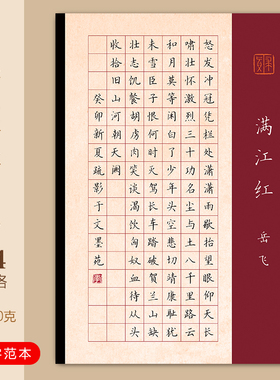 满江红
岳飞
怒发冲冠凭栏处潇潇雨歇抬望眼仰天长
啸壮怀激烈三十功名尘与土八千里路云
和月莫等闲白了少年头空悲切靖康耻犹
未雪臣子恨何时灭驾长车踏破贺兰山缺
壮志饥餐胡虏肉笑谈渴饮匈奴血待从头
收拾旧山河朝天阙
癸卯新夏疏影于文墨苑
4
0克
字范本